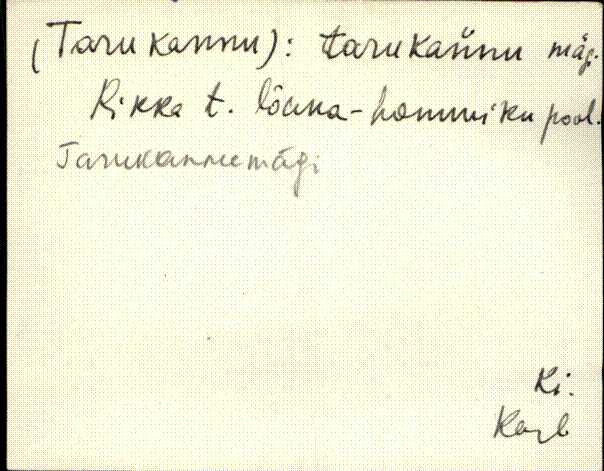 (Tarukannu): tarukannu mäg.
Rikka t. lõuna-hommiku pool.
Tarukannumägi
Ki.